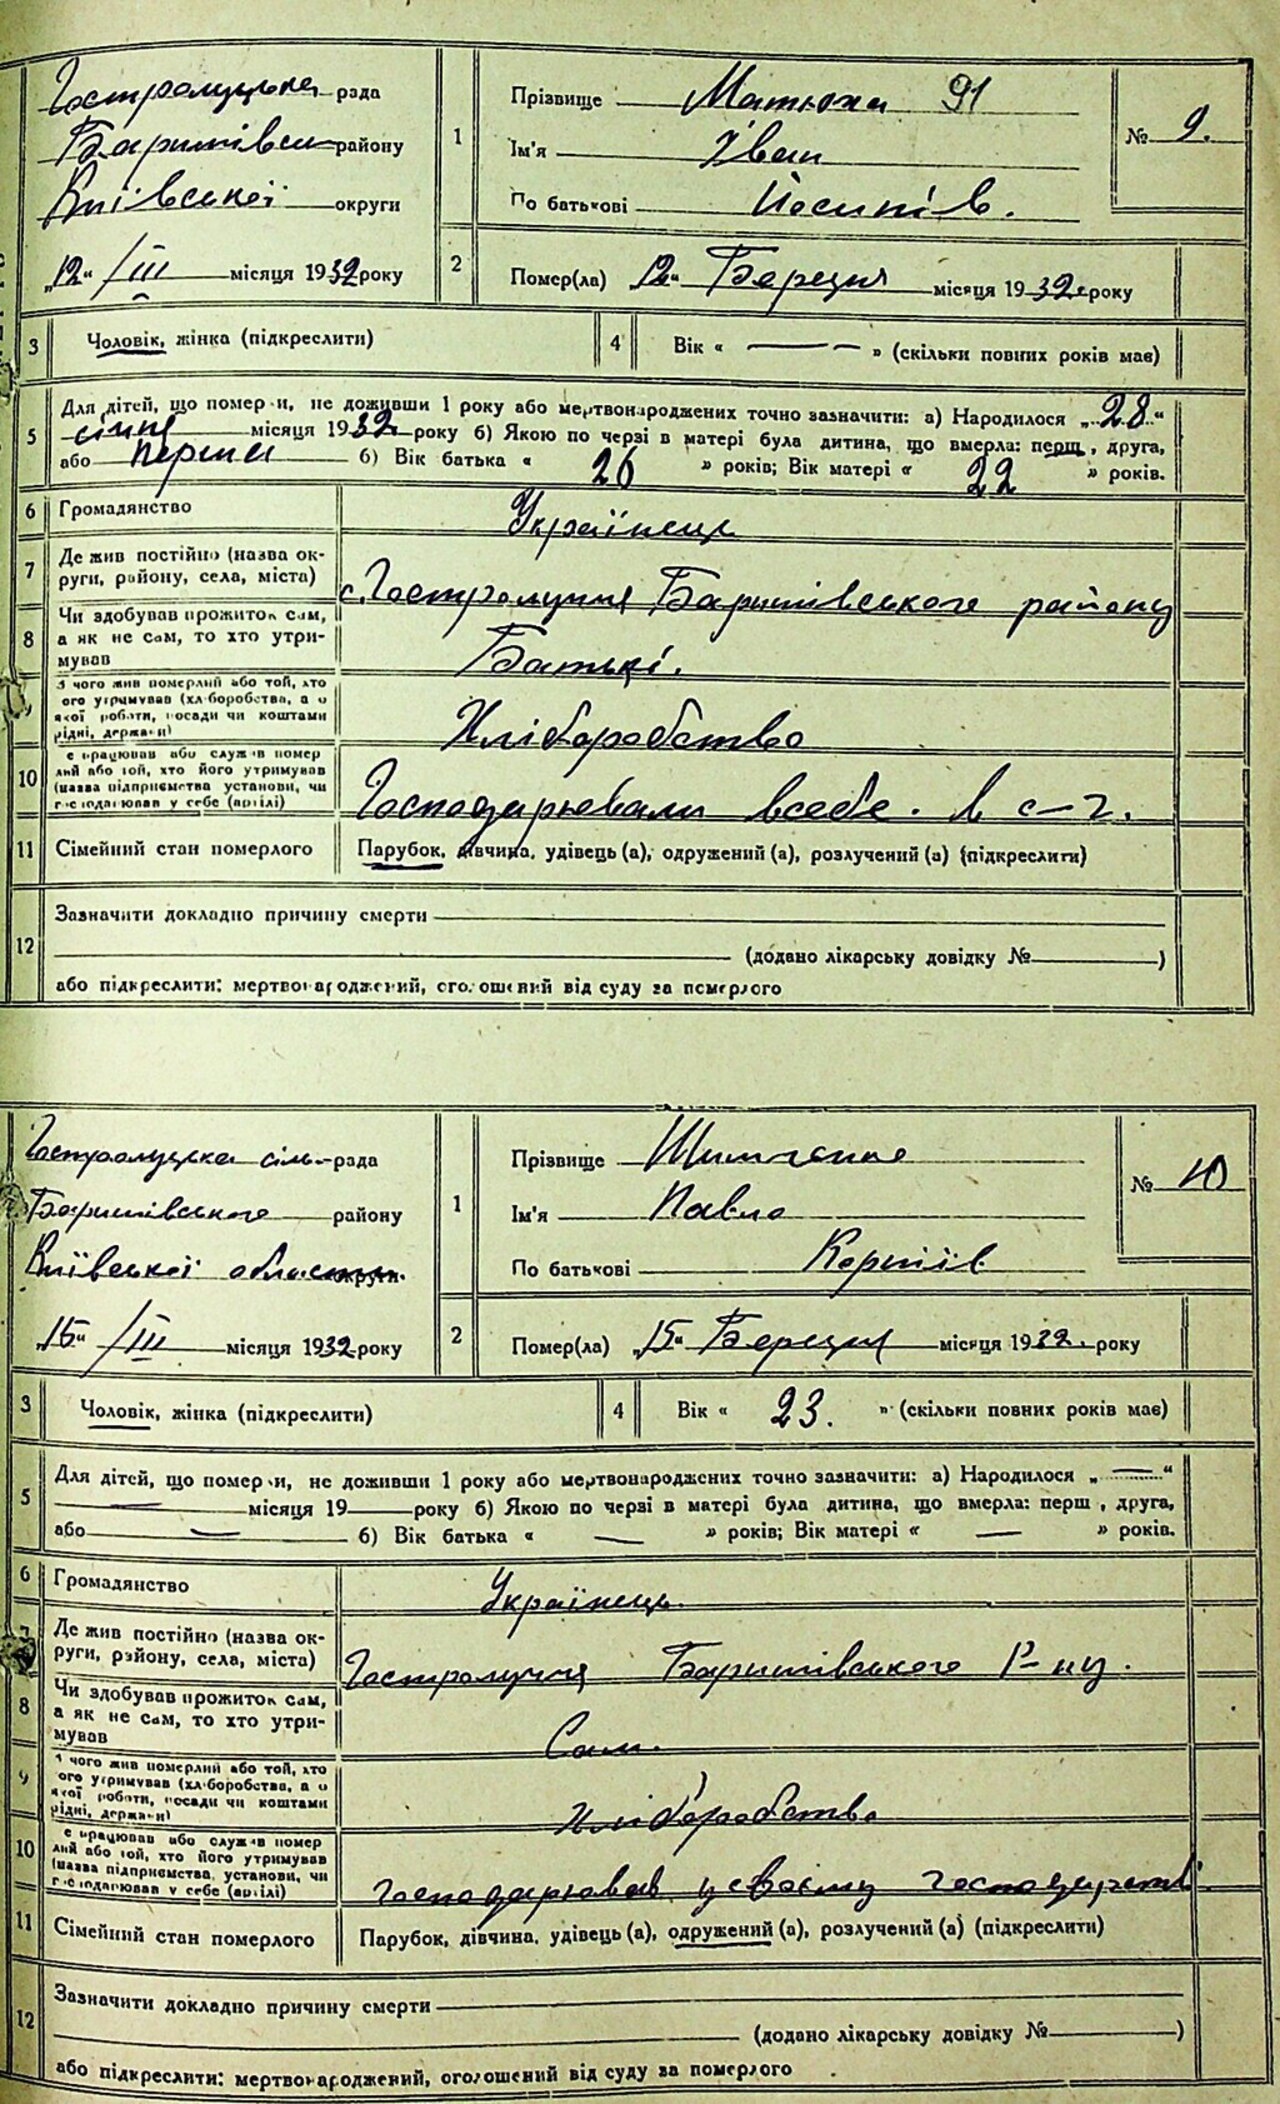 Гостролуцька рада
Баришівськ району
Київської округи
„12“ /III місяця 1932 року
1
Прізвище Матюха 91
Ім'я Іван
По батькові Йосипів.
№ 9.
2
Помер(ла) „12“ Березня місяця 1932 року
3 Чоловік, жінка (підкреслити)
4 Вік « — — » (скільки повних років має)
5 Для дітей, що померли, не доживши 1 року або мертвонароджених точно зазначити: а) Народилося „28“
січня місяця 1932 року б) Якою по черзі в матері була дитина, що вмерла: перш , друга,
або перша б) Вік батька « 26 » років; Вік матері « 22 » років.
6 Громадянство Українець
7 Де жив постійно (назва округи, району, села, міста) с. Гостролуччя Баришівського району
8 Чи здобував прожиток сам,
а як не сам, то хто утримував Батькі.
9 З чого жив померлий або той, хто
ого утримував (хліборобства, а о
якої роботи, посади чи коштами
рідні, держави) Хліборобство
10 е працював або служив помер
лий або той, хто його утримував
(назва підприємства установи, чи
господарював у себе (артілі) Господарювали всебе. в с–г.
11 Сімейний стан померлого Парубок, дівчина, удівець (а), одружений (а), розлучений (а) (підкреслити)
12 Зазначити докладно причину смерти
(додано лікарську довідку № )
або підкреслити: мертвонароджений, оголошений від суду за померлого
Гостролуцька сіль-рада
Баришівського району
Київської области округи
„15“ /III місяця 1932 року
1
Прізвище
Ім'я Павло
По батькові Корніїв
№ 10
2
Помер(ла) „15“ Березня місяця 1932 року
3 Чоловік, жінка (підкреслити)
4 Вік « 23. » (скільки повних років має)
5 Для дітей, що померли, не доживши 1 року або мертвонароджених точно зазначити: а) Народилося „—“
— місяця 19 року б) Якою по черзі в матері була дитина, що вмерла: перш , друга,
або — б) Вік батька « — » років; Вік матері « — » років.
6 Громадянство Українець
7 Де жив постійно (назва округи, району, села, міста) Гостролуччя Баришівського Р–ну.
8 Чи здобував прожиток сам,
а як не сам, то хто утримував Сам.
9 З чого жив померлий або той, хто
ого утримував (хліборобства, а о
якої роботи, посади чи коштами
рідні, держави) Хліборобство
10 е працював або служив помер
лий або той, хто його утримував
(назва підприємства, установи, чи
господарював у себе (артілі) Господарював у своєму господарстві.
11 Сімейний стан померлого Парубок, дівчина, удівець (а), одружений (а), розлучений (а) (підкреслити)
12 Зазначити докладно причину смерти
(додано лікарську довідку № )
або підкреслити: мертвонароджений, оголошений від суду за померлого